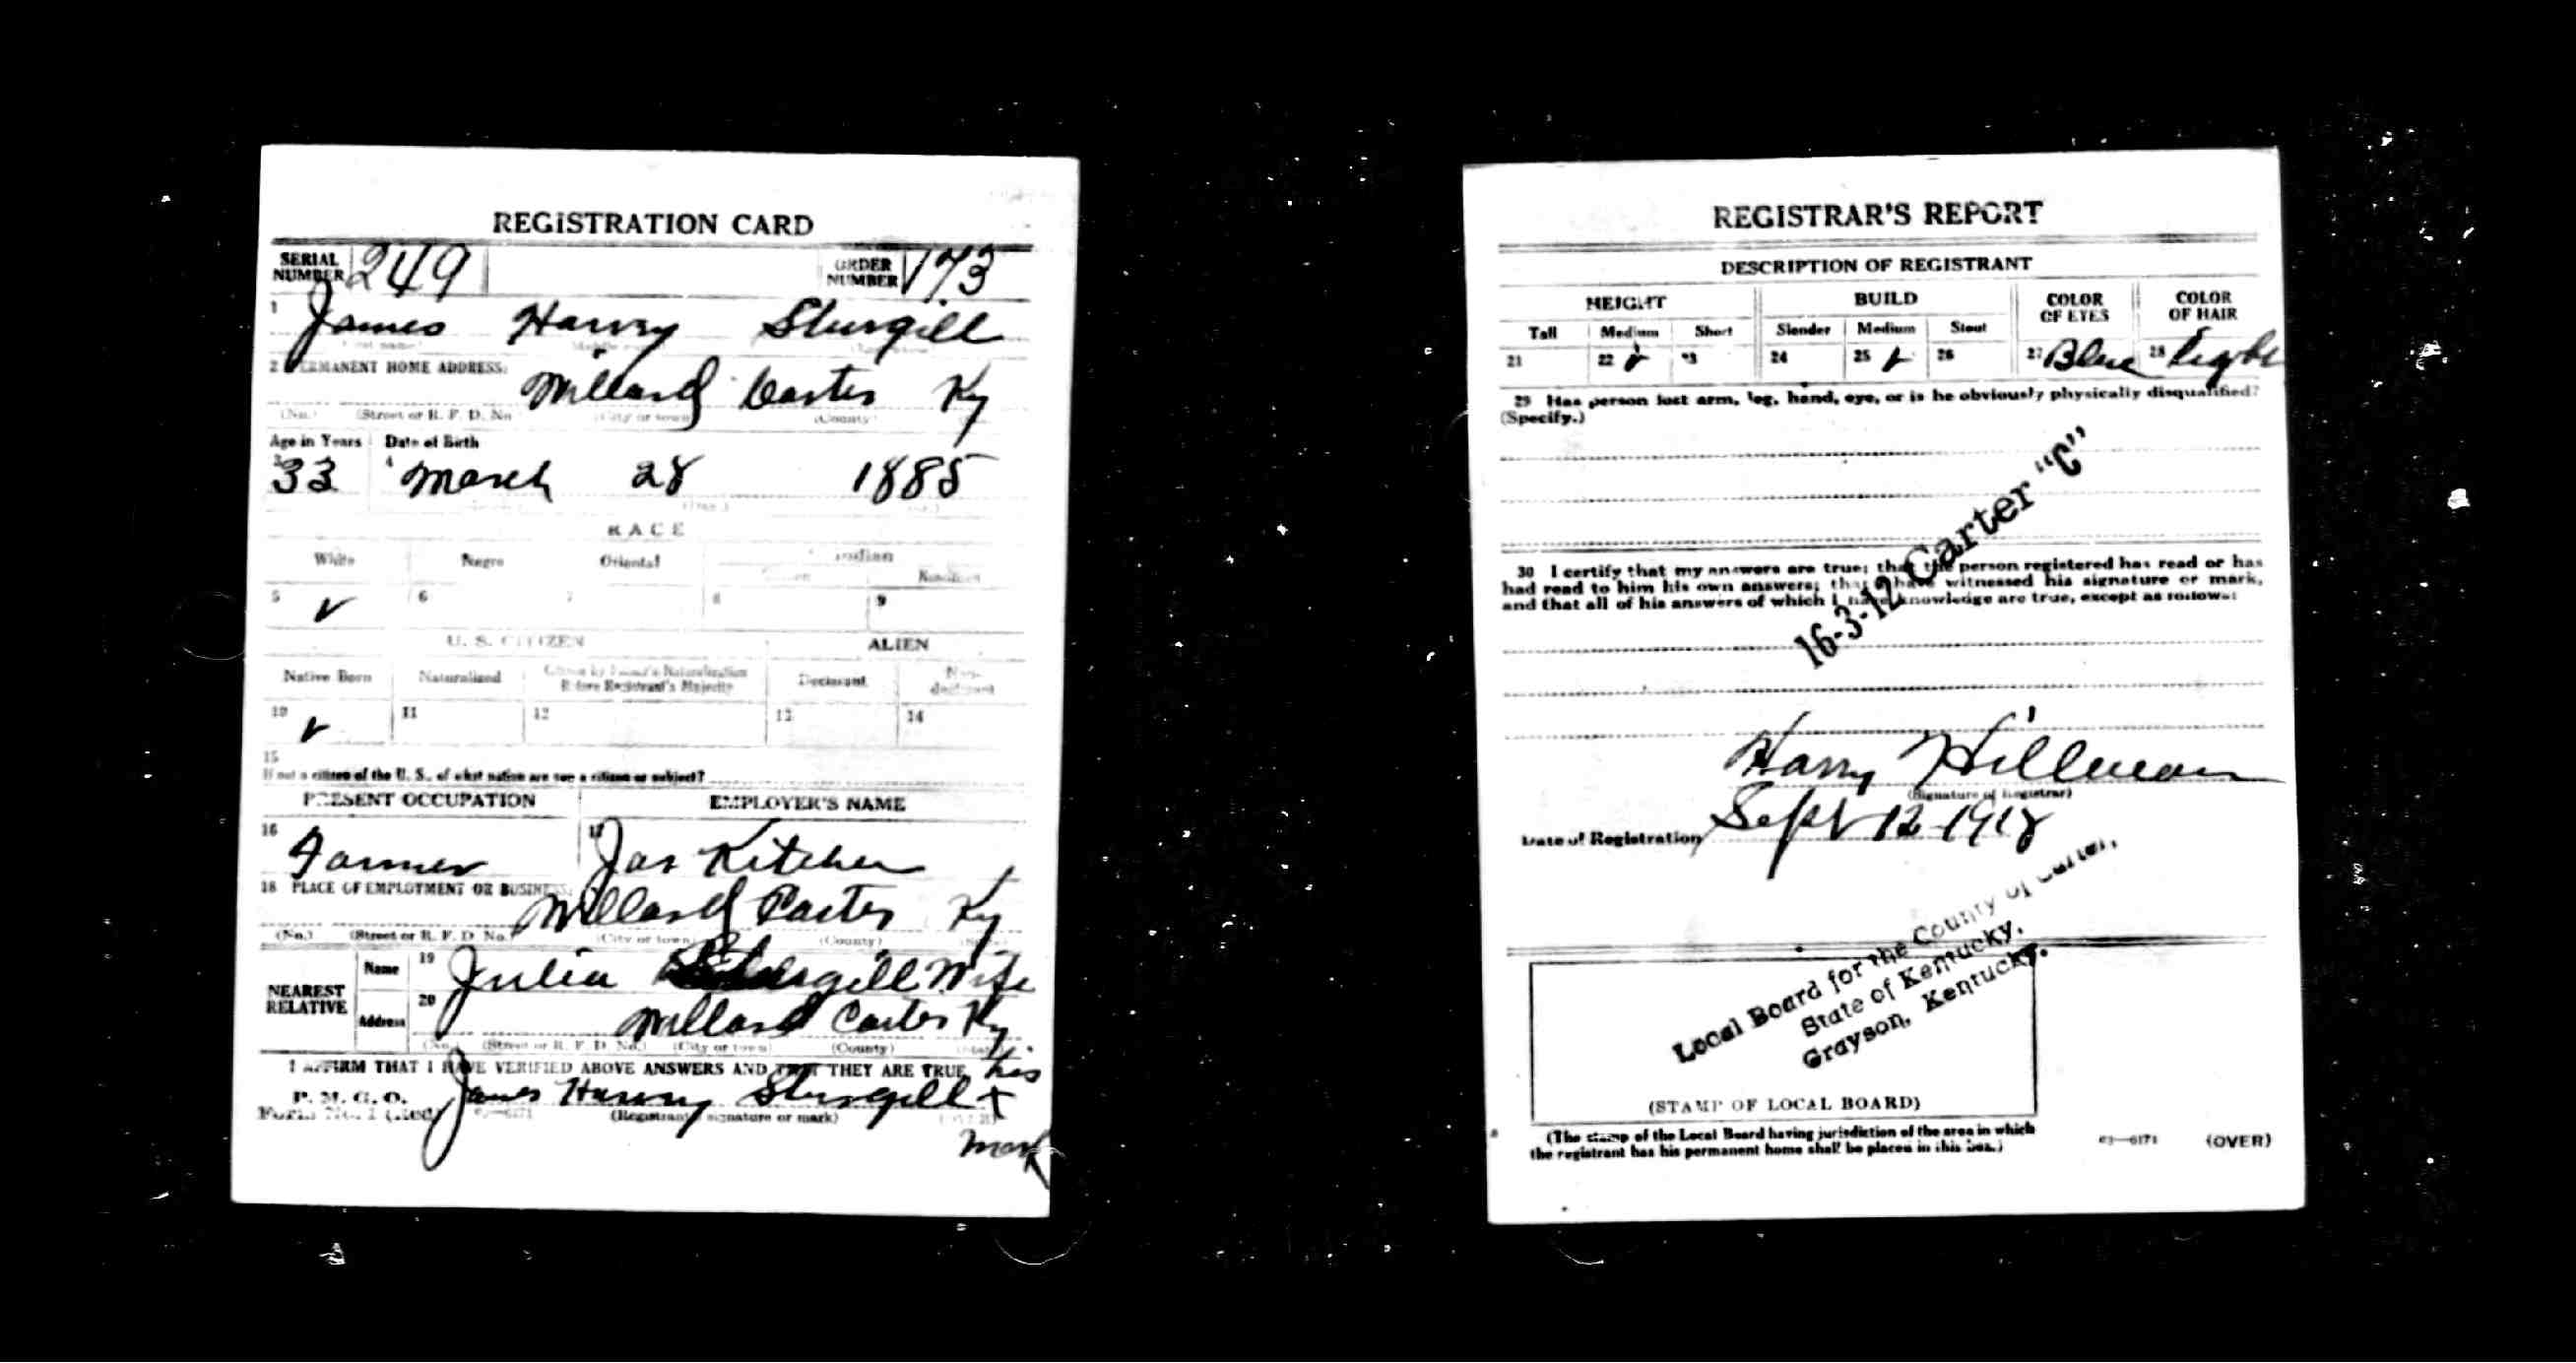 REGISTRATION CARD
SERIAL NUMBER 249 ORDER NUMBER 173
1 James Harvey Sturgill
2 PERMANENT HOME ADDRESS: Millard Carter Ky
(No.) (Street or R. F. D. No (City or town) (County)
Age in Years Date of Birth
3 33 4 March 28 1885
RACE
White Negro Oriental Indian
Citizen Noncitizen
5 ✓ 6 7 8 9
U. S. CITIZEN ALIEN
Native Born Naturalized Citizen by Father's Naturalization Before Registrant's Majority Declarant Non-declarant
10 ✓ 11 12 13 14
15
If not a citizen of the U. S., of what nation are you a citizen or subject?
PRESENT OCCUPATION EMPLOYER'S NAME
16 Farmer 17 Jas Kitchen
18 PLACE OF EMPLOYMENT OR BUSINESS: Millard Carter Ky
(No.) (Street or R. F. D. No.) (City or town) (County) (State)
NEAREST RELATIVE Name 19 Julia Sturgill Wife
Address 20 Millard Carter Ky
(No.) (Street or R. F. D. No.) (City or town) (County) (State)
I AFFIRM THAT I HAVE VERIFIED ABOVE ANSWERS AND THAT THEY ARE TRUE his
P. M. G. O.
Form No. 1 (Red) James Harvey Sturgill x
03—6171 (Registrant's signature or mark) (OVER)
mark
REGISTRAR'S REPORT
DESCRIPTION OF REGISTRANT
HEIGHT BUILD COLOR OF EYES COLOR OF HAIR
Tall Medium Short Slender Medium Stout
21 22 ✓ 23 24 25 ✓ 26 27 Blue 28 Light
29 Has person lost arm, leg, hand, eye, or is he obviously physically disqualified?
(Specify.)
16-3-12 Carter "C"
30 I certify that my answers are true; that the person registered has read or has
had read to him his own answers; that I have witnessed his signature or mark,
and that all of his answers of which I have knowledge are true, except as follows:
Harry Hillman
(Signature of Registrar)
Date of Registration Sept 12 1918
Local Board for the County of Carter,
State of Kentucky,
Grayson, Kentucky.
(STAMP OF LOCAL BOARD)
(The stamp of the Local Board having jurisdiction of the area in which
the registrant has his permanent home shall be placed in this box.)
03—6171 (OVER)